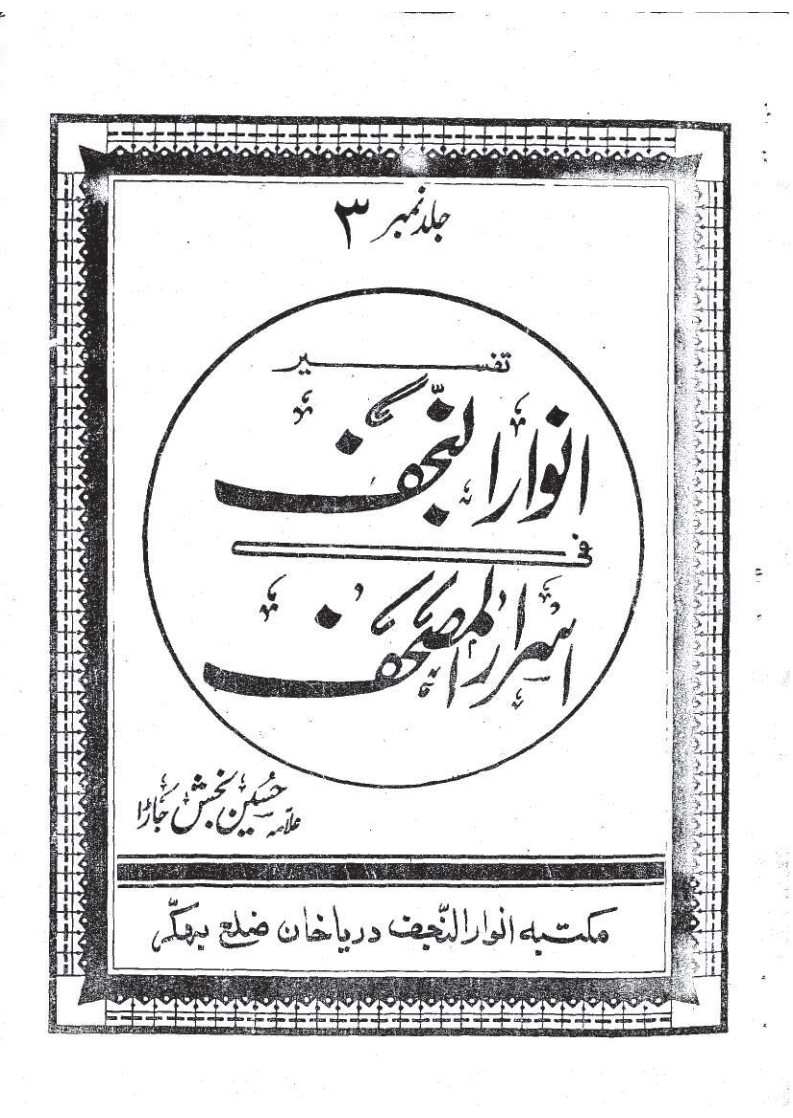 جلد نمبر ۳
تفسیر
انوار النّجف
فی
اسرار المصحف
علامہ حسین بخش جاڑا
مکتبہ انوار النّجف دریا خان ضلع بھکّر